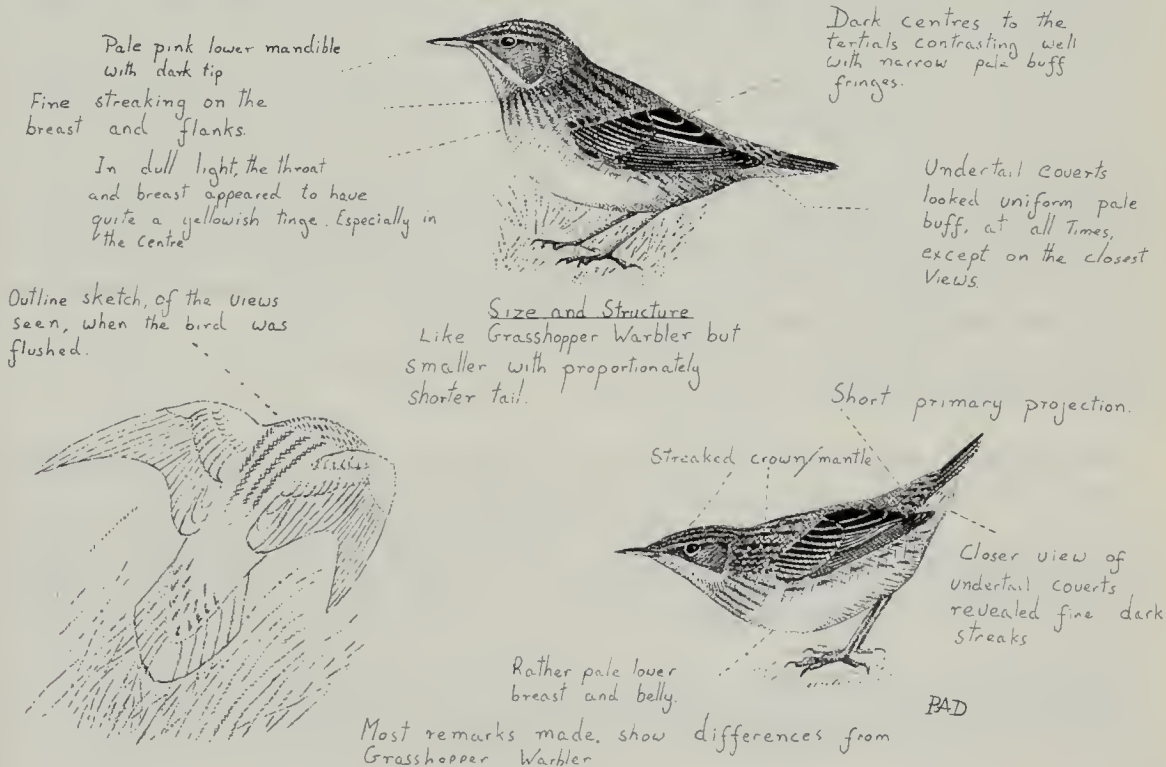 Pale pink lower mandible
with dark tip
Fine streaking on the
breast and flanks.
In dull light, the throat
and breast appeared to have
quite a yellowish tinge. Especially in
the centre
Dark centres to the
tertials contrasting well
with narrow pale buff
fringes.
Undertail coverts
looked uniform pale
buff, at all Times,
except on the closest
Views.
Outline sketch, of the views
seen, when the bird was
flushed.
Size and Structure
Like Grasshopper Warbler but
smaller with proportionately
shorter tail.
Short primary projection.
Streaked crown/mantle
Closer view of
undertail coverts
revealed fine dark
streaks
Rather pale lower
breast and belly.
PAD
Most remarks made, show differences from
Grasshopper Warbler